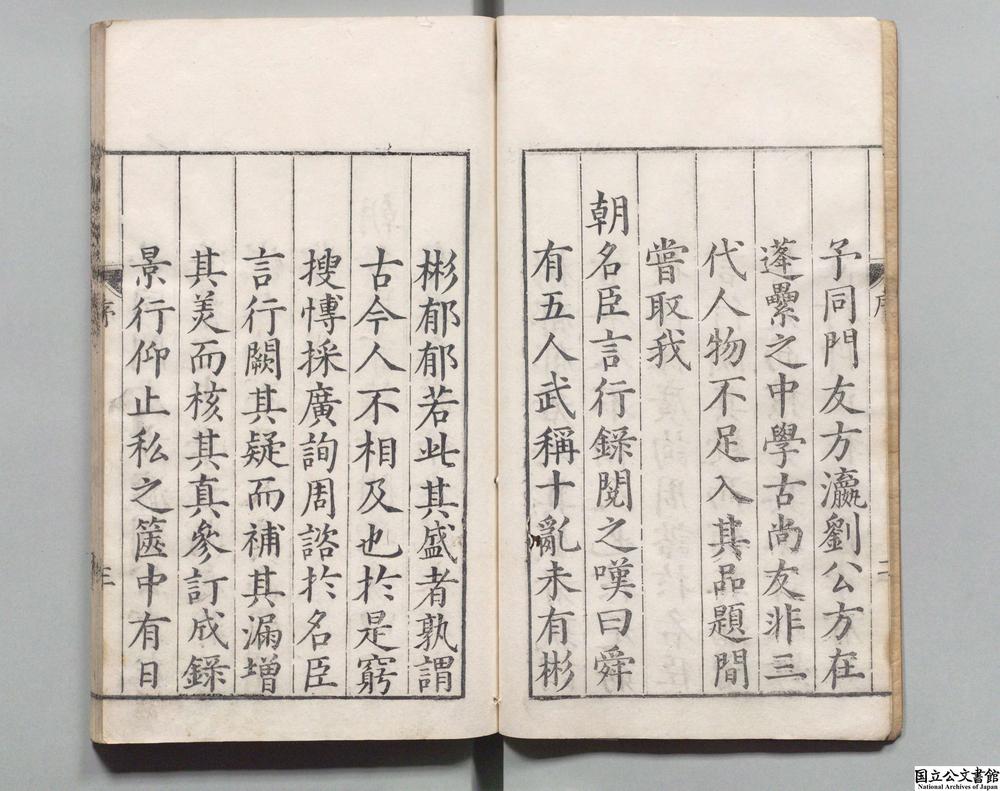 予同門友方瀛劉公方在
蓬纍之中學古尚友非三
代人物不足入其品題間
嘗取我
朝名臣言行錄閱之嘆曰舜
有五人武稱十亂未有彬
序
二
彬郁郁若此其盛者孰謂
古今人不相及也於是窮
搜愽採廣詢周諮於名臣
言行闕其疑而補其漏增
其美而核其真參訂成錄
景行仰止私之篋中有日
序
三
国立公文書館
National Archives of Japan